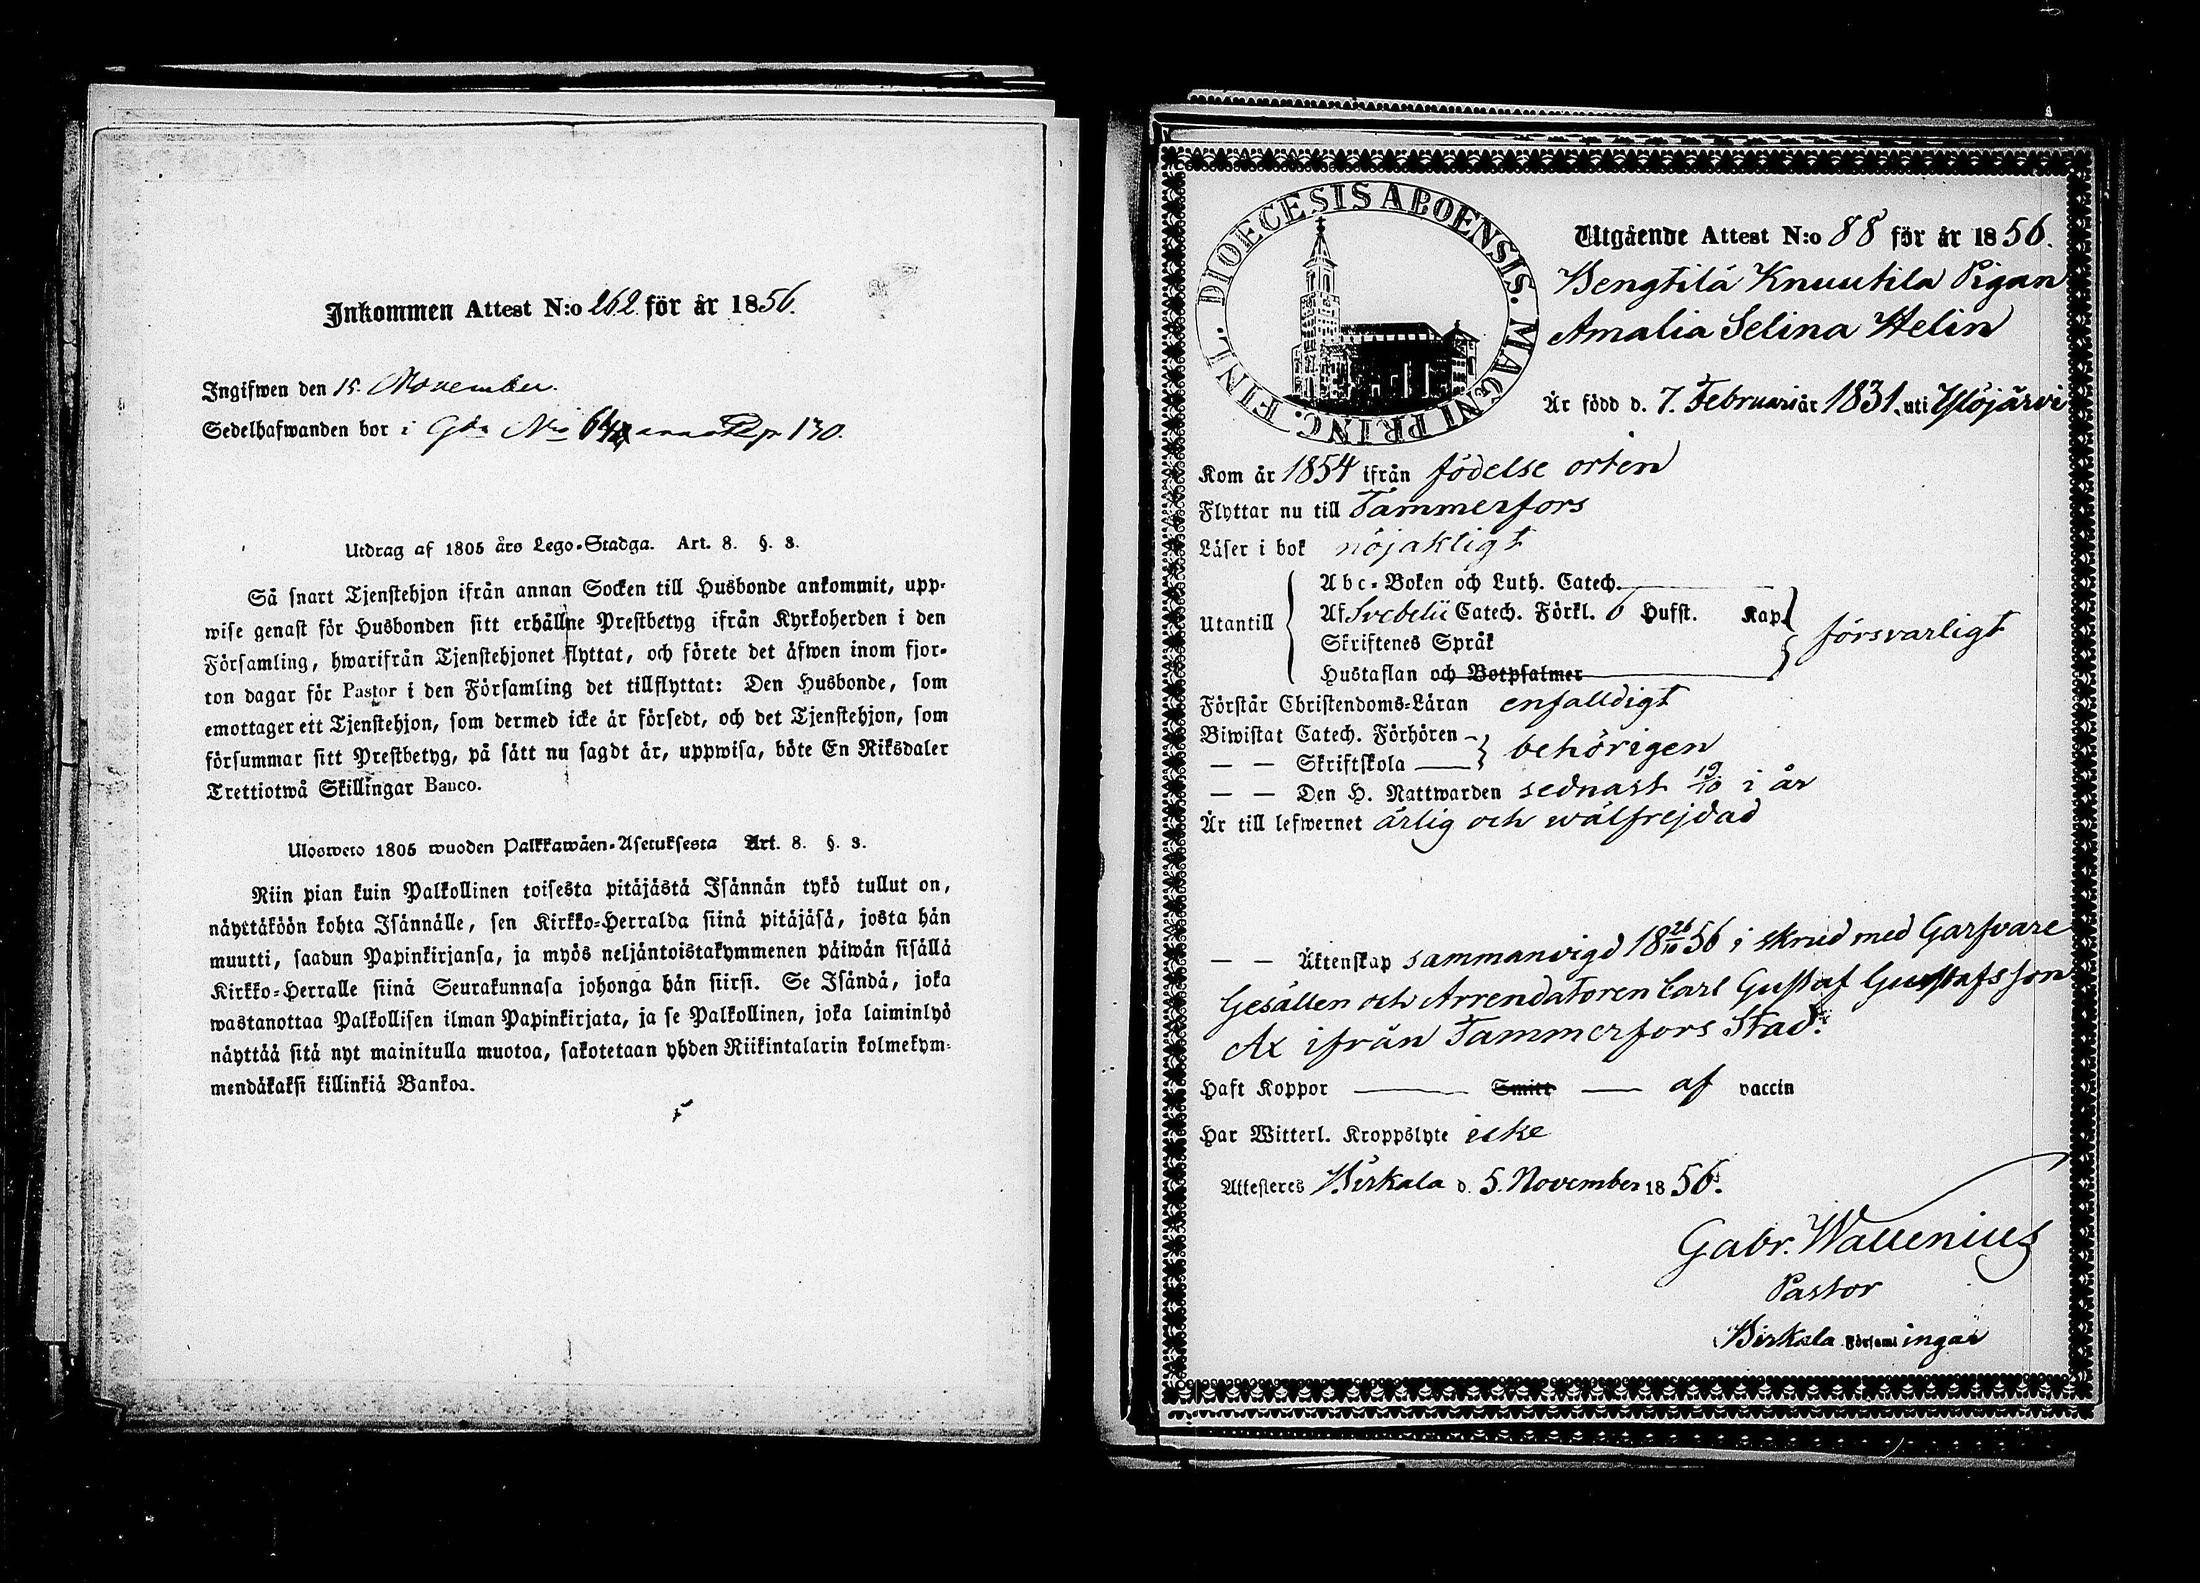 Inkommen Attest N:o 262 för år 1856.
Ingifwen den 15 November.
Sedelhafwanden bor i Gdn No 64 pr 130.
Utdrag af 1805 års Lego-Stadga. Art. 8. §. 3.
Så snart Tjenstehjon ifrån annan Socken till Husbonde ankommit, upp-
wise genast för Husbonden sitt erhållne Prestbetyg ifrån Kyrkoherden i den
Församling, hwarifrån Tjenstehjonet flyttat, och förete det äfwen inom fjor-
ton dagar för Pastor i den Församling det tillflyttat: Den Husbonde, som
emottager ett Tjenstehjon, som dermed icke är försedt, och det Tjenstehjon, som
försummar sitt Prestbetyg, på sätt nu sagdt är, uppwisa, böte En Riksdaler
Trettiotwå Skillingar Banco.
Ulosweto 1805 wuoden Palkkawäen-Asetuksesta Art. 8. §. 3.
Niin pian kuin Palkollinen toisesta pitäjästä Isännän tykö tullut on,
näyttäköön kohta Isännälle, sen Kirkko-Herralda siinä pitäjäsä, josta hän
muutti, saadun Papinkirjansa, ja myös neljäntoistakymmenen päiwän sisällä
Kirkko-Herralle siinä Seurakunnasa johonga hän siirsi. Se Isändä, joka
wastanottaa Palkollisen ilman Papinkirjata, ja se Palkollinen, joka laiminlyö
näyttää sitä nyt mainitulla muotoa, sakotetaan yhden Riikintalarin kolmekym-
mendäkaksi killinkiä Bankoa.
DIOECESIS ABOENSIS. MAGNI PRINC. FINL.
Utgående Attest N:o 88 för år 1856.
Bengtilä Knuutila Pigan
Amalia Selina Helin
Är född d. 7. Februari år 1831. uti Ylöjärvi
Kom år 1854 ifrån födelse orten
Flyttar nu till Tammerfors
Läser i bok nöjakligt
Utantill
Abc-Boken och Luth. Catech.
Af Svebelii Catech. Förkl. 6 Hufst. Kap
Skriftenes Språk
Hustaflan och Botpsalmer
försvarligt
Förstår Christendoms-Läran enfalldigt
Biwistat Catech. Förhören
— — Skriftskola
behörigen
— — Den H. Nattwarden sednast 19/10 i år
Är till lefwernet ärlig och wälfrejdad
— — Äktenskap sammanvigd 18 26/10 56 i skrud med Garfvare
Gesällen och Arrendatoren Carl Gustaf Gustafsson
Ax ifrån Tammerfors Stad.
Haft Koppor — Smitt — af vaccin
Har Witterl. Kroppslyte icke
Attesteres Birkala d. 5. November 1856.
Gabr. Wallenius
Pastor
Birkala Församlingar